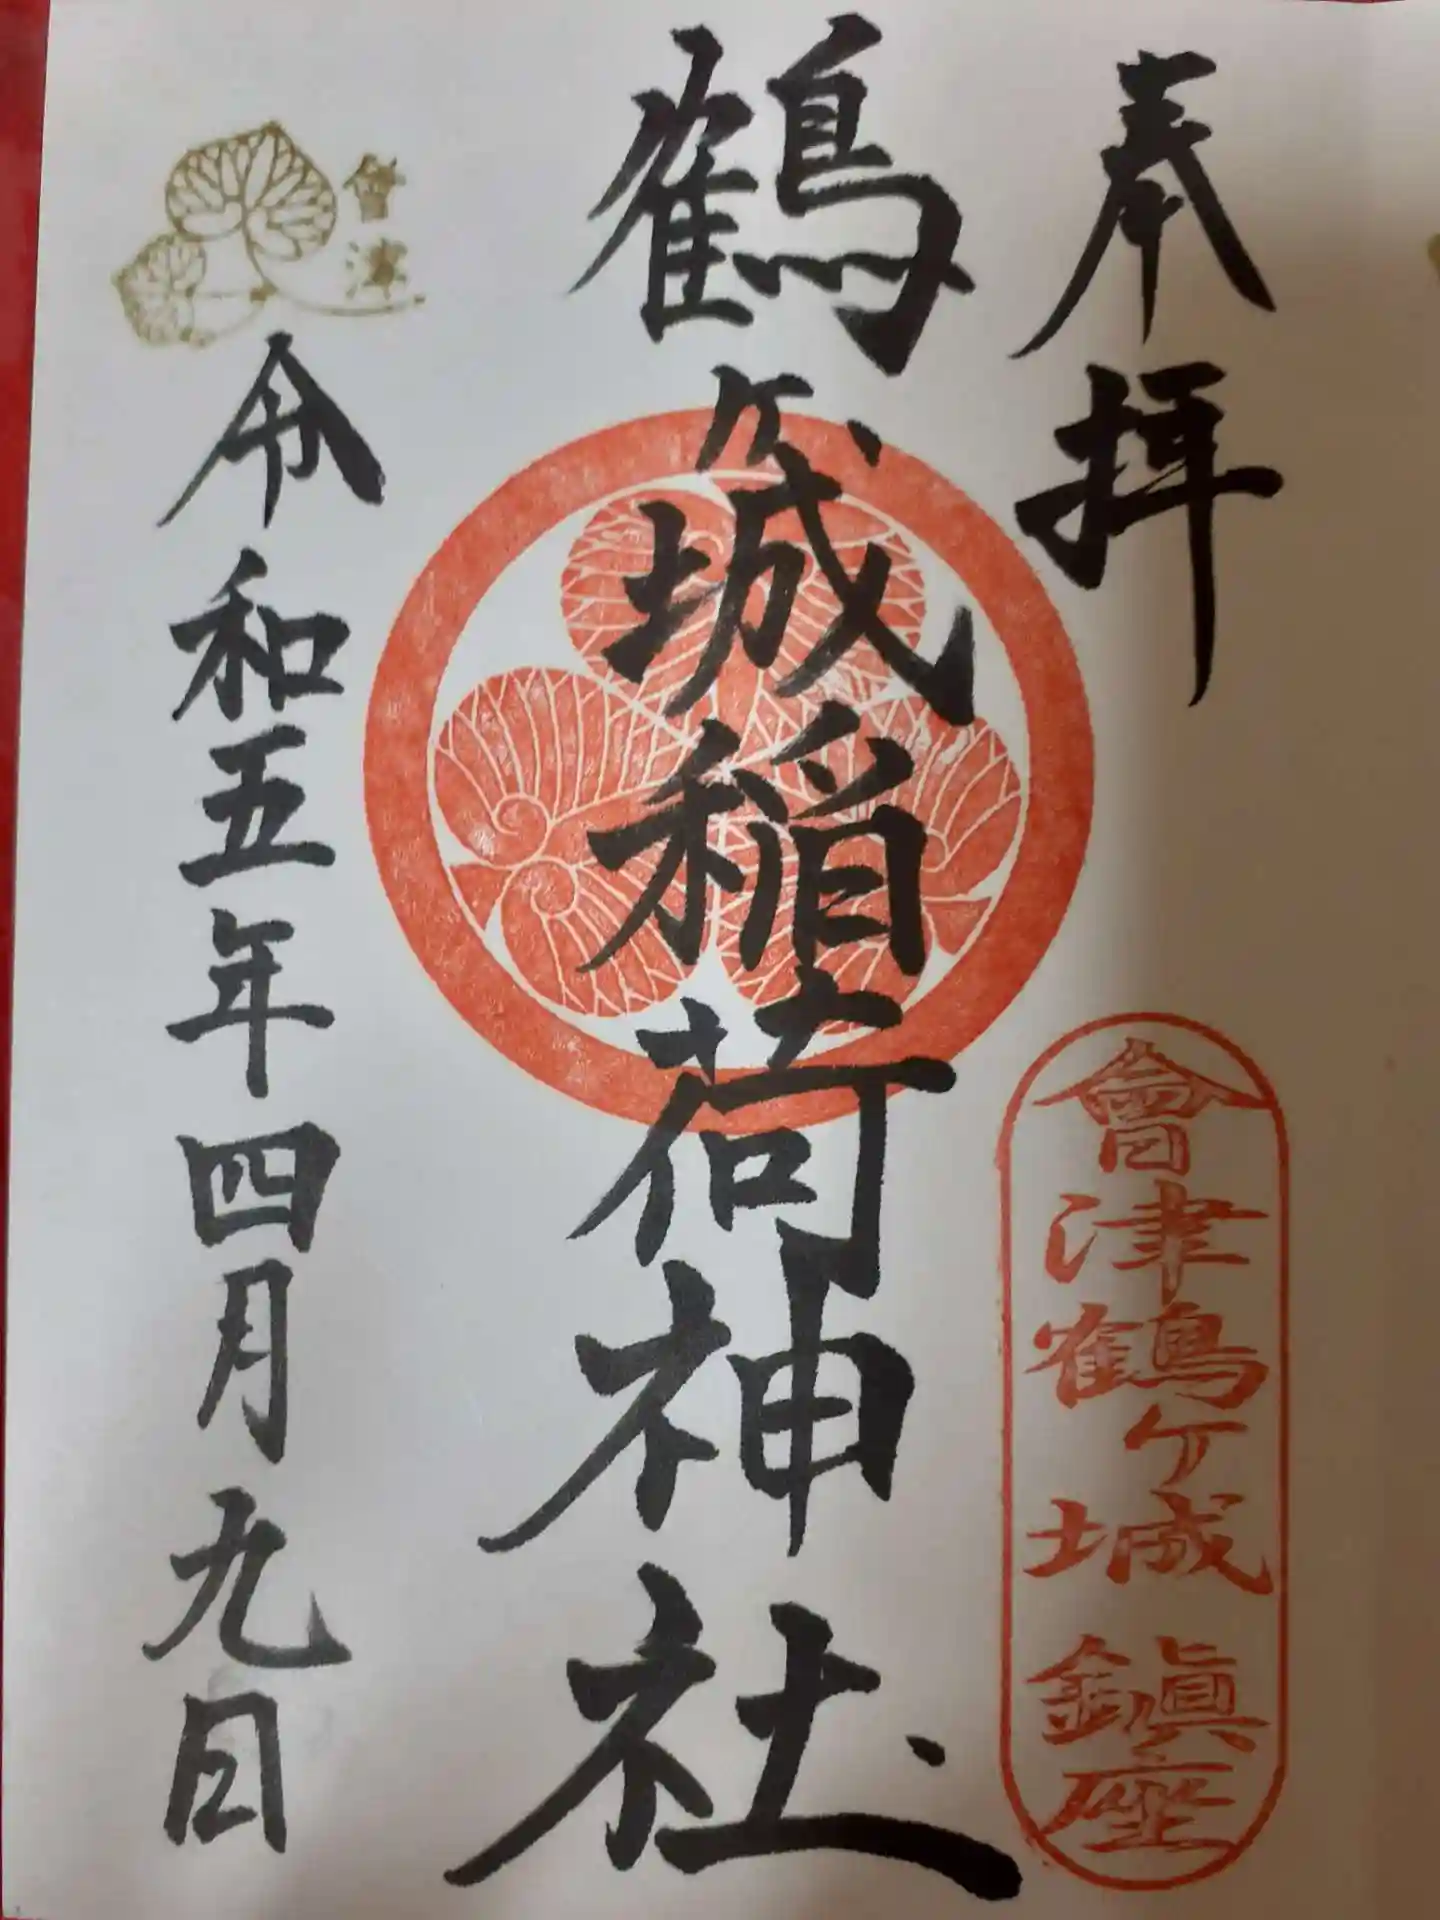 奉拝
會津鶴ヶ城鎮座
鶴ヶ城稲荷神社
會津
令和五年四月九日